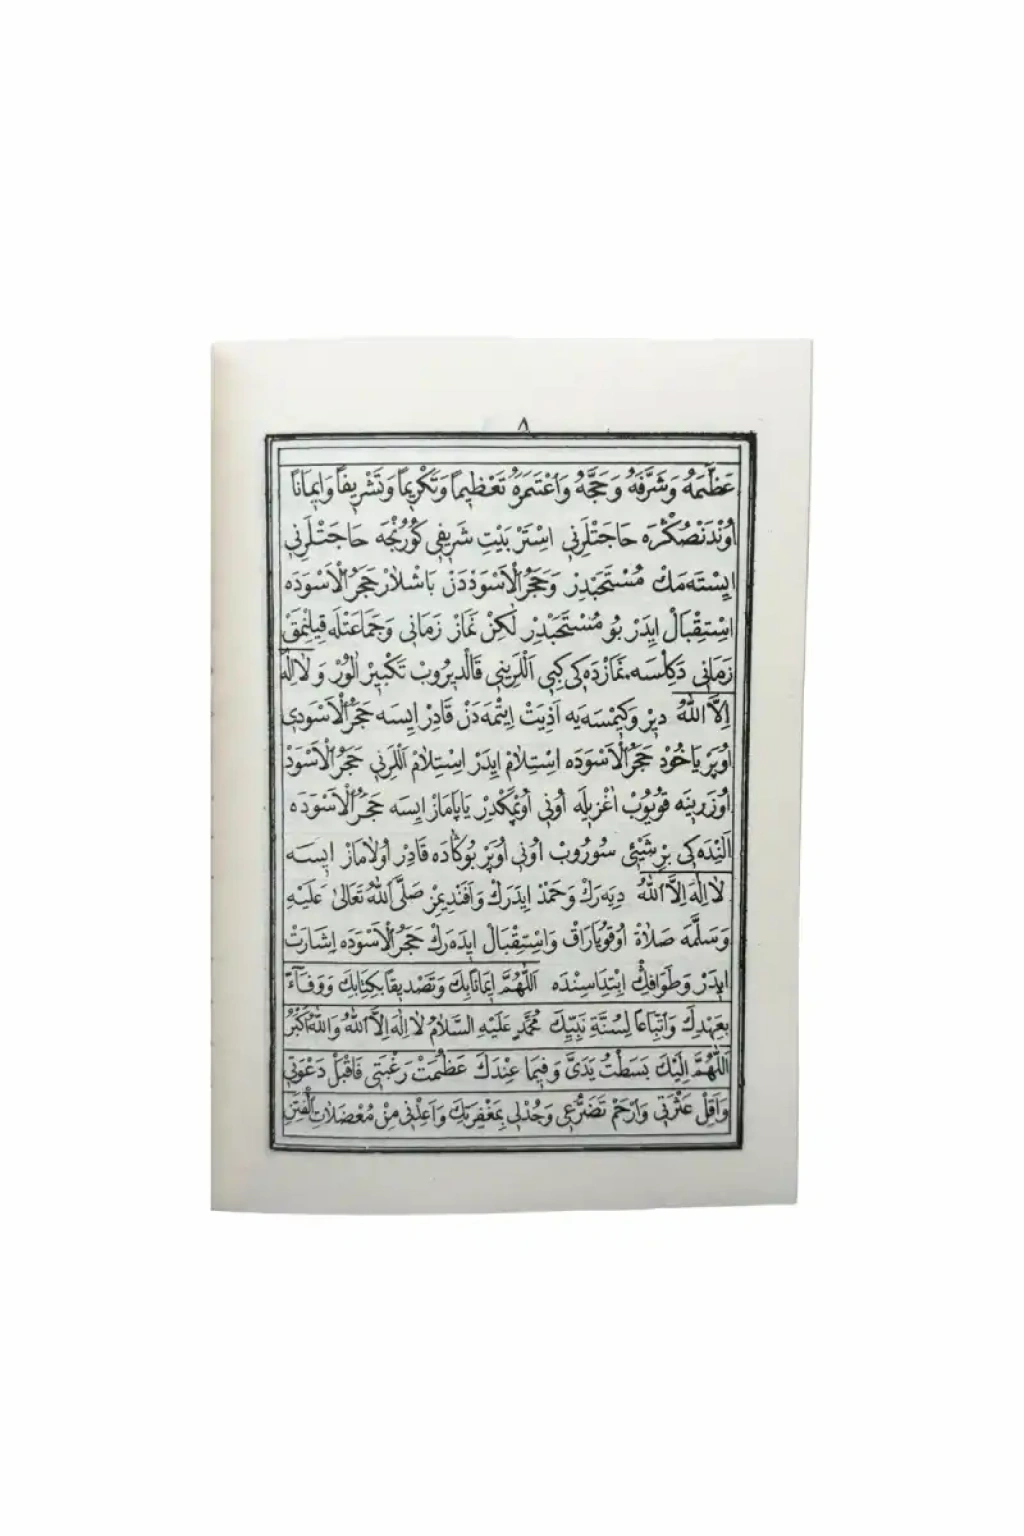 ٨
عَظَّمَهُ وَشَرَّفَهُ وَحَجَّهُ وَاعْتَمَرَهُ تَعْظِيماً وَتَكْرِيماً وَتَشْرِيفاً وَاِيمَاناً
اُونْدَنْصُكْرَه حَاجَتْلَرِنِي اِسْتَرْ بَيْتِ شَرِيفِي كُورُنْجَه حَاجَتْلَرِنِي
اِيسْتَه مَكْ مُسْتَحَبْدِرْ وَحَجَرُ الْاَسْوَدْدَنْ بَاشْلَارْ حَجَرُ الْاَسْوَدَه
اِسْتِقْبَالْ اِيدَرْ بُو مُسْتَحَبْدِرْ لٰكِنْ نَمَازْ زَمَانِي وَجَمَاعَتْلَه قِيلِنْمَقْ
زَمَانِي دَكِلْسَه. نَمَازْدَه كِي كِبِي اَللَّرِينِي قَالْدِيرُوبْ تَكْبِيرْ اَلُورْ وَ لَا اِلٰهَ
اِلَّا اللّٰهُ دِيرْ وَكِيمْسَه يَه اَذِيَتْ اِيتْمَه دَنْ قَادِرْ اِيسَه حَجَرُ الْاَسْوَدِي
اُوپَرْ يَاخُودْ حَجَرُ الْاَسْوَدَه اِسْتِلَامْ اِيدَرْ اِسْتِلَامْ اَللَّرِنِي حَجَرُ الْاَسْوَدْ
اُوزَرِينَه قُويُوبْ اَغْزِيلَه اُونِي اُوپْمَكْدِرْ يَاپَامَازْ اِيسَه حَجَرُ الْاَسْوَدَه
اَلِنْدَه كِي بِرْ شَيْئِي سُورُوبْ اُونِي اُوپَرْ بُوكَادَه قَادِرْ اُولَامَازْ اِيسَه
لَا اِلٰهَ اِلَّا اللّٰهُ دِيَه رَكْ وَحَمْدْ اِيدَرَكْ وَاَفَنْدِيمِزْ صَلَّى اللّٰهُ تَعَالٰى عَلَيْهِ
وَسَلَّمَه صَلَاةْ اُوقُويَارَاقْ وَاِسْتِقْبَالْ اِيدَه رَكْ حَجَرُ الْاَسْوَدَه اِشَارَتْ
اِيدَرْ وَطَوَافِكْ اِبْتِدَاسِنْدَه اَللّٰهُمَّ اِيمَاناً بِكَ وَتَصْدِيقاً بِكِتَابِكَ وَوَفَآءً
بِعَهْدِكَ وَاتِّبَاعاً لِسُنَّةِ نَبِيِّكَ مُحَمَّدٍ عَلَيْهِ السَّلَامُ لَا اِلٰهَ اِلَّا اللّٰهُ وَاللّٰهُ اَكْبَرُ
اَللّٰهُمَّ اِلَيْكَ بَسَطْتُ يَدَىَّ وَفِيمَا عِنْدَكَ عَظُمَتْ رَغْبَتِي فَاقْبَلْ دَعْوَتِي
وَاَقِلْ عَثْرَتِي وَارْحَمْ تَضَرُّعِي وَجُدْلِي بِمَغْفِرَتِكَ وَاَعِذْنِي مِنْ مُعْضَلَاتِ الْفِتَنِ